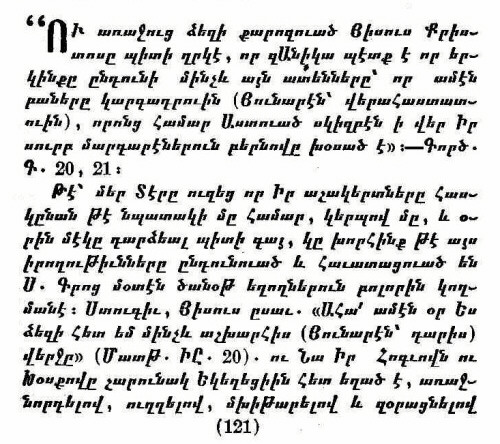 “ՈՒ առաջուց ձեզի քարոզուած Յիսուս Քրիս-
տոսը պիտի ղրկէ, որ զԱնիկա պէտք է որ եր-
կինքը ընդունի մինչև այն ատենները՝ որ ամէն
բաները կարգադրուին (Յունարէն՝ վերահաստատ-
ուին), որոնց համար Աստուած սկիզբէն ի վեր Իր
սուրբ մարգարէներուն բերնովը խօսած է»։—Գործ.
Գ. 20, 21։
Թէ՝ մեր Տէրը ուզեց որ Իր աշակերտները հաս-
կընան թէ նպատակի մը համար, կերպով մը, և օ-
րին մէկը դարձեալ պիտի գայ, կը խորհինք թէ այս
իրողութիւնները ընդունուած և հաւատացուած են
Ս. Գրոց մօտէն ծանօթ եղողներուն բոլորին կող-
մանէ։ Ստուգիւ, Յիսուս ըսաւ. «Ահա՛ ամէն օր Ես
ձեզի հետ եմ մինչև աշխարհիս (Յունարէն՝ դարիս)
վերջը» (Մատթ. ԻԸ. 20). ու Նա Իր Հոգւովն ու
Խօսքովը շարունակ Եկեղեցիին հետ եղած է, առաջ-
նորդելով, ուղղելով, մխիթարելով և զօրացնելով
(121)